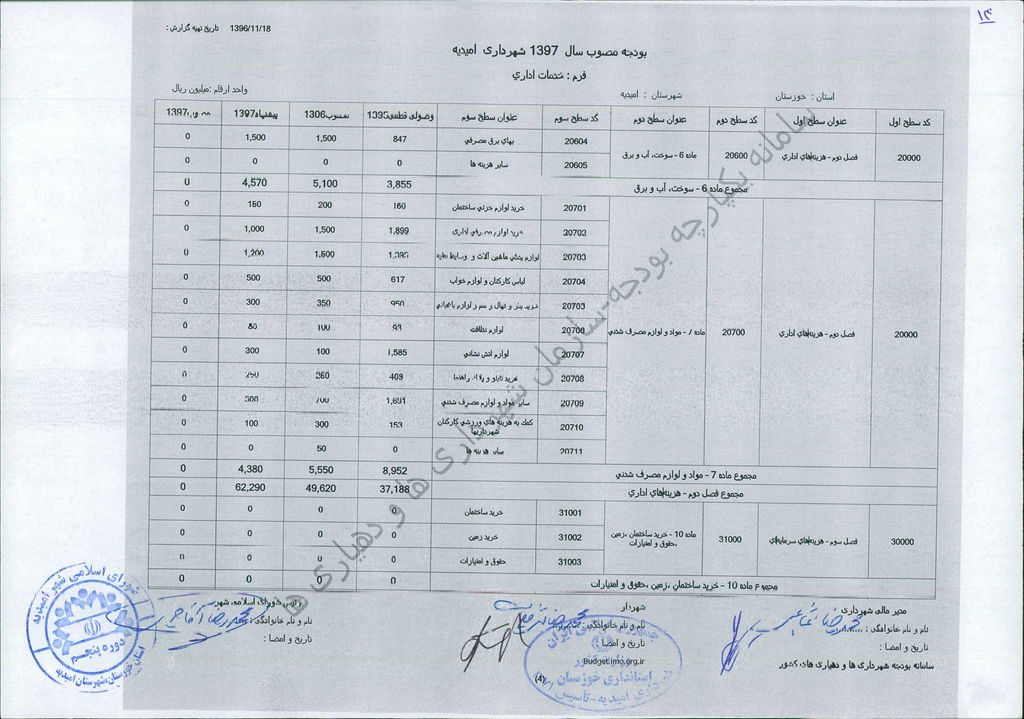 ۱۴
تاریخ تهیه گزارش : 1396/11/18
بودجه مصوب سال 1397 شهرداری امیدیه
فرم : خدمات اداري
استان : خوزستان شهرستان : امیدیه واحد ارقام :میلیون ریال
کد سطح اول عنوان سطح اول کد سطح دوم عنوان سطح دوم کد سطح سوم عنوان سطح سوم وصولی قطعی1395 پیشنهاد1397
20000 فصل دوم - هزینه‌های اداري 20600 ماده 6 - سوخت، آب و برق 20604 بهاي برق مصرفي 847 1,500 1,500 0
20605 سایر هزینه ها 0 0 0 0
مجموع ماده 6 - سوخت، آب و برق 3,855 5,100 4,570 0
20000 فصل دوم - هزینه‌های اداري 20700 ماده 7 - مواد و لوازم مصرف شدني
20701 خرید لوازم جزئي ساختمان 160 200 160 0
20702 خرید لوازم مصرفي اداري 1,899 1,500 1,000 0
20703 لوازم یدکي ماشین آلات و وسایط نقلیه 1,600 1,200 0
20704 لباس کارکنان و لوازم خواب 617 500 500 0
950 350 300 0
لوازم نظافت 93 100 80 0
20707 لوازم آتش نشاني 1,585 100 300 0
20708 خرید تابلو و پلاک راهنما 409 260 250 0
20709 سایر مواد و لوازم مصرف شدني 1,691 700 0
20710 کمک به هزینه هاي ورزشي کارکنان شهرداریها 153 300 100 0
20711 سایر هزینه ها 0 50 0 0
مجموع ماده 7 - مواد و لوازم مصرف شدني 8,952 5,550 4,380 0
مجموع فصل دوم - هزینه‌های اداري 37,188 49,620 62,290 0
30000 فصل سوم - هزینه‌های سرمایه‌ای 31000 ماده 10 - خرید ساختمان ،زمین ،حقوق و امتیازات
31001 خرید ساختمان 0 0 0 0
31002 خرید زمین 0 0 0 0
31003 حقوق و امتیازات 0 0 0 0
مجموع ماده 10 - خرید ساختمان ،زمین ،حقوق و امتیازات 0 0 0 0
سامانه یکپارچه بودجه-سازمان شهرداری ها و دهیاری ها
مدیر مالی شهرداری شهردار رئیس شورای اسلامی شهر
نام و نام خانوادگی : نام و نام خانوادگی : نام و نام خانوادگی :
تاریخ و امضا : تاریخ و امضا : تاریخ و امضا :
سامانه بودجه شهرداری ها و دهیاری های کشور
Budget.imo.org.ir
(4)
شورای اسلامی شهر امیدیه
دوره پنجم
استان خوزستان-شهرستان امیدیه
استانداری خوزستان